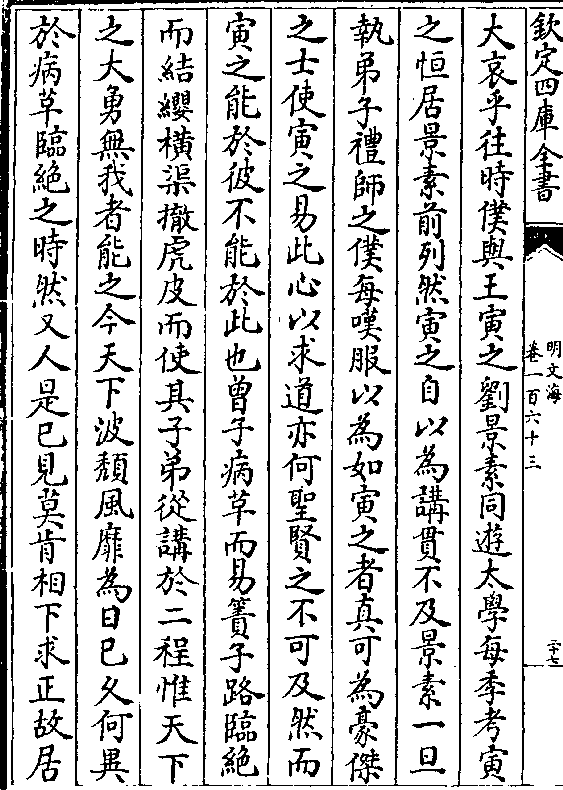 欽定四庫全書
明文海
卷一百六十三
二十七
大哀乎往時僕與王寅之劉景素同遊太學每季考寅
之恒居景素前列然寅之自以為講貫不及景素一旦
執弟子禮師之僕每嘆服以為如寅之者真可為豪傑
之士使寅之易此心以求道亦何聖賢之不可及然而
寅之能於彼不能於此也曾子病革而易簀子路臨絶
而結纓橫渠撤虎皮而使其子弟從講於二程惟天下
之大勇無我者能之今天下波頽風靡為日已久何異
於病革臨絶之時然又人是已見莫肯相下求正故居